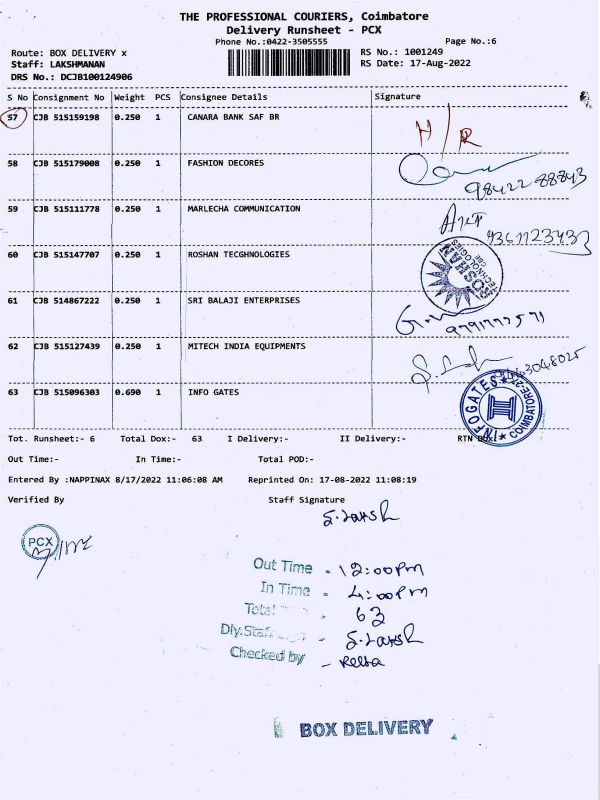 THE PROFESSIONAL COURIERS, Coimbatore
Delivery Runsheet - PCX
Phone No.:0422-3505555 Page No.:6
Route: BOX DELIVERY x RS No.: 1001249
Staff: LAKSHMANAN RS Date: 17-Aug-2022
DRS No.: DCJB100124906
S No Consignment No Weight PCS Consignee Details Signature
57 CJB 515159198 0.250 1 CANARA BANK SAF BR H/R
58 CJB 515179008 0.250 1 FASHION DECORES
98422 88843
59 CJB 515111778 0.250 1 MARLECHA COMMUNICATION
60 CJB 515147707 0.250 1 ROSHAN TECGHNOLOGIES ROSHAN TECHNOLOGIES CBE
61 CJB 514867222 0.250 1 SRI BALAJI ENTERPRISES
62 CJB 515127439 0.250 1 MITECH INDIA EQUIPMENTS
63 CJB 515096303 0.690 1 INFO GATES INFO GATES COIMBATORE
Tot. Runsheet:- 6 Total Dox:- 63 I Delivery:- II Delivery:- RTN Dox:-
Out Time:- In Time:- Total POD:-
Entered By :NAPPINAX 8/17/2022 11:06:08 AM Reprinted On: 17-08-2022 11:08:19
Verified By Staff Signature
PCX
Out Time - 12:00pm
In Time - 4:00pm
Total - 63
Dly.Staff -
Checked by -
BOX DELIVERY